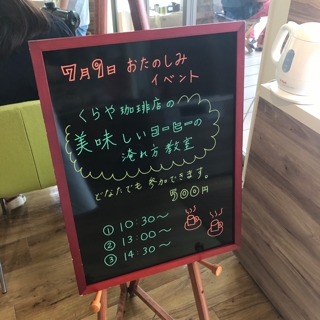 7月9日 おたのしみ
イベント
くらや珈琲店の
美味しいコーヒーの
淹れ方教室
どなたでも参加できます。
500円
① 10:30～
② 13:00～
③ 14:30～